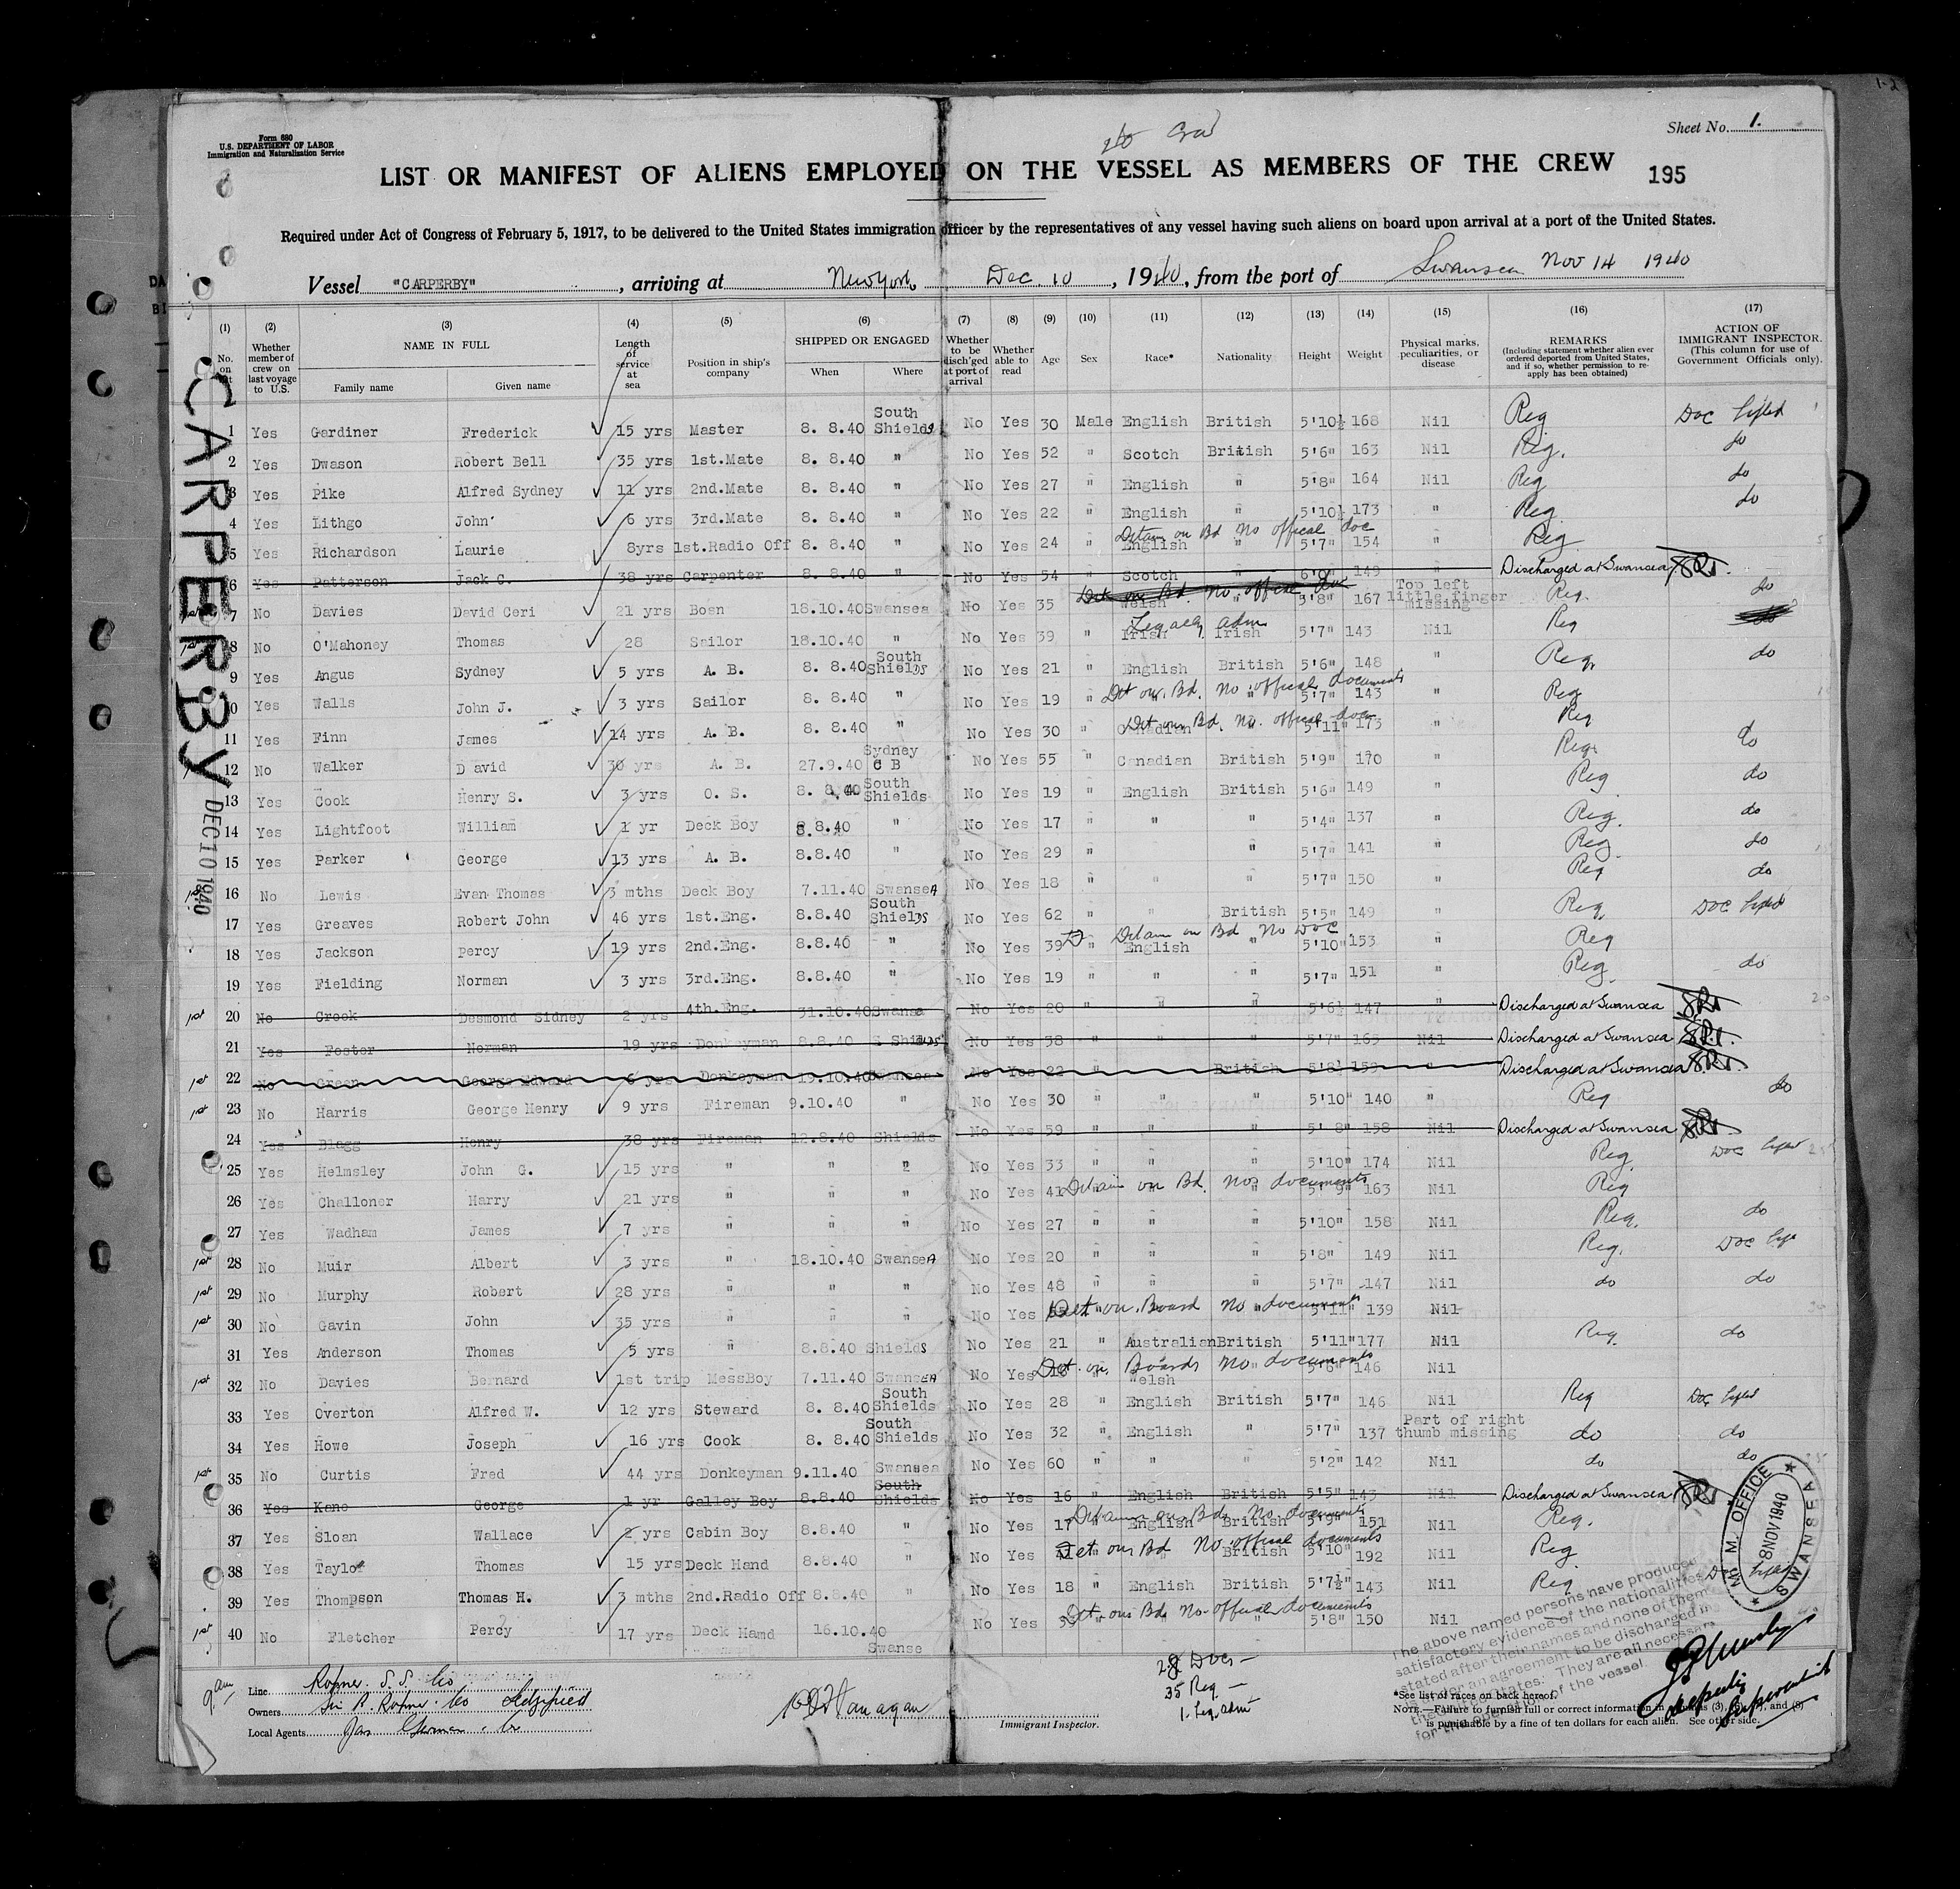 Form 680
U.S. DEPARTMENT OF LABOR
Immigration and Naturalization Service
Sheet No. 1.
LIST OR MANIFEST OF ALIENS EMPLOYED ON THE VESSEL AS MEMBERS OF THE CREW 195
Required under Act of Congress of February 5, 1917, to be delivered to the United States immigration officer by the representatives of any vessel having such aliens on board upon arrival at a port of the United States.
Vessel "CARPERBY", arriving at New York Dec. 10, 1940, from the port of Swansea Nov 14 1940
CARPERBY
DEC 10 1940
(1) No. on (2) Whether member of crew on last voyage to U.S. (3) NAME IN FULL Family name Given name (4) Length of service at sea (5) Position in ship's company (6) SHIPPED OR ENGAGED When Where (7) Whether to be disch'ged at port of arrival (8) Whether able to read (9) Age (10) Sex (11) Race* (12) Nationality (13) Height (14) Weight (15) Physical marks, peculiarities, or disease (16) REMARKS (Including statement whether alien ever ordered deported from United States, and if so, whether permission to re-apply has been obtained) (17) ACTION OF IMMIGRANT INSPECTOR. (This column for use of Government Officials only).
1 Yes Gardiner Frederick 15 yrs Master 8. 8.40 South Shields No Yes 30 Male English British 5'10½ 168 Nil Reg Doc lifted
2 Yes Dwason Robert Bell 35 yrs 1st.Mate 8. 8.40 " No Yes 52 " Scotch British 5'6" 163 Nil Reg. do
3 Yes Pike Alfred Sydney 11 yrs 2nd.Mate 8. 8.40 " No Yes 27 " English " 5'8" 164 Nil Reg do
4 Yes Lithgo John 6 yrs 3rd.Mate 8. 8.40 " No Yes 22 " English " 5'10½ 173 " Reg do
5 Yes Richardson Laurie 8yrs 1st.Radio Off 8. 8.40 " No Yes 24 " English " 5'7" 154 " Reg
Detain on Bd No offical doc
6 Yes Patterson Jack C. 38 yrs Carpenter 8. 8.40 " No Yes 54 " Scotch " 149 " Discharged at Swansea
7 No Davies David Ceri 21 yrs Bosn 18.10.40 Swansea No Yes 35 " Welsh " 5'8" 167 Top left little finger missing Reg. do
1st 8 No O'Mahoney Thomas 28 Sailor 18.10.40 " No Yes 39 " Irish Irish 5'7" 143 Nil Reg
Legally adm
9 Yes Angus Sydney 5 yrs A. B. 8. 8.40 South Shields No Yes 21 " English British 5'6" 148 " Reg. do
10 Yes Walls John J. 3 yrs Sailor 8. 8.40 " No Yes 19 " " 5'7" 143 " Reg
Det on Bd. No offical documents
11 Yes Finn James 14 yrs A. B. 8. 8.40 " No Yes 30 " Canadian " 5'11" 173 " Reg
Det on Bd. No. offical doc
12 No Walker David 30 yrs A. B. 27.9.40 Sydney C B No Yes 55 " Canadian British 5'9" 170 " Reg. do
13 Yes Cook Henry S. 3 yrs O. S. 8. 8.40 South Shields No Yes 19 " English British 5'6" 149 " Reg do
14 Yes Lightfoot William 1 yr Deck Boy 8.8.40 " No Yes 17 " " " 5'4" 137 " Reg. do
15 Yes Parker George 13 yrs A. B. 8.8.40 " No Yes 29 " " 5'7" 141 " Reg. do
1st 16 No Lewis Evan Thomas 3 mths Deck Boy 7.11.40 Swansea No Yes 18 " " " 5'7" 150 " Reg do
17 Yes Greaves Robert John 46 yrs 1st.Eng. 8.8.40 South Shields No Yes 62 " " British 5'5" 149 " Reg. Doc lifted
18 Yes Jackson Percy 19 yrs 2nd.Eng. 8.8.40 " No Yes 39 " English " 5'10" 153 " Reg
Detain on Bd No Doc
19 Yes Fielding Norman 3 yrs 3rd.Eng. 8.8.40 " No Yes 19 " " " 5'7" 151 " Reg. do
1st 20 No Crook Desmond Sidney 2 yrs 4th.Eng. 31.10.40 Swansea No Yes 20 " " " 5'6½ 147 " Discharged at Swansea
21 Yes Foster Norman 19 yrs Donkeyman 8.8.40 S Shields No Yes 38 " " " 5'7" 165 Nil Discharged at Swansea
1st 22 No Green George Edward 6 yrs Donkeyman 19.10.40 Swansea No Yes 22 " British 5'8½ 159 " Discharged at Swansea
1st 23 No Harris George Henry 9 yrs Fireman 9.10.40 " No Yes 30 " " " 5'10" 140 " Reg do
24 Yes Blagg Henry 38 yrs Fireman 12.8.40 Shields No Yes 59 " " " 5' 8" 158 Nil Discharged at Swansea
25 Yes Helmsley John G. 15 yrs " " " No Yes 33 " " " 5'10" 174 Nil Reg. Doc lifted
26 Yes Challoner Harry 21 yrs " " " No Yes 41 " 5' 9" 163 Nil Reg
Detain on Bd. No documents
27 Yes Wadham James 7 yrs " " " No Yes 27 " " " 5'10" 158 Nil Reg. do
1st 28 No Muir Albert 3 yrs " 18.10.40 Swansea No Yes 20 " " " 5'8" 149 Nil Reg. Doc lift
1st 29 No Murphy Robert 28 yrs " " " No Yes 48 " " " 5'7" 147 Nil do do
1st 30 No Gavin John 35 yrs " " " No Yes " 5'11" 139 Nil
Det on Board No documents
31 Yes Anderson Thomas 5 yrs " 8.8.40 Shields No Yes 21 " Australian British 5'11" 177 Nil Reg. do
1st 32 No Davies Bernard 1st trip MessBoy 7.11.40 Swansea No Yes " Welsh " 146 Nil
Det on Board No documents
33 Yes Overton Alfred W. 12 yrs Steward 8. 8.40 South Shields No Yes 28 " English British 5'7" 146 Nil Reg Doc lifted
34 Yes Howe Joseph 16 yrs Cook 8. 8.40 South Shields No Yes 32 " English " 5'7" 137 Part of right thumb missing do do
1st 35 No Curtis Fred 44 yrs Donkeyman 9.11.40 Swansea No Yes 60 " " " 5'2" 142 Nil do do
36 Yes Kane George 1 yr Galley Boy 8.8.40 South Shields No Yes 16 " English British 5'5" 143 Nil Discharged at Swansea
37 Yes Sloan Wallace 2 yrs Cabin Boy 8.8.40 " No Yes 17 " English British 151 Nil Reg.
Detain on Bd. No documents
38 Yes Taylor Thomas 15 yrs Deck Hand 8.8.40 " No Yes " British 5'10" 192 Nil Reg
Det on Bd No offical documents
39 Yes Thompson Thomas H. 3 mths 2nd.Radio Off 8.8.40 " No Yes 18 " English British 5'7½" 143 Nil Reg
1st 40 No Fletcher Percy 17 yrs Deck Hamd 16.10.40 Swanse No Yes " " 5'8" 150 Nil
Det on Bd. No offical documents
M. M. OFFICE
8 NOV 1940
SWANSEA
The above named persons have produced
satisfactory evidence of the nationalities
stated after their names and none of them
is under an agreement to be discharged in
the United States. They are all necessary
for the operation of the vessel.
28 Docs -
35 Reg -
1. Leg. adm
9 am
Line Ropner. S.S. Co
Owners Sir R. Ropner. Co
Local Agents Jas German. Co
Immigrant Inspector.
Deputy Superintendent
*See list of races on back hereof.
NOTE.—Failure to furnish full or correct information in columns (3), (5), (7), and (9)
is punishable by a fine of ten dollars for each alien. See other side.